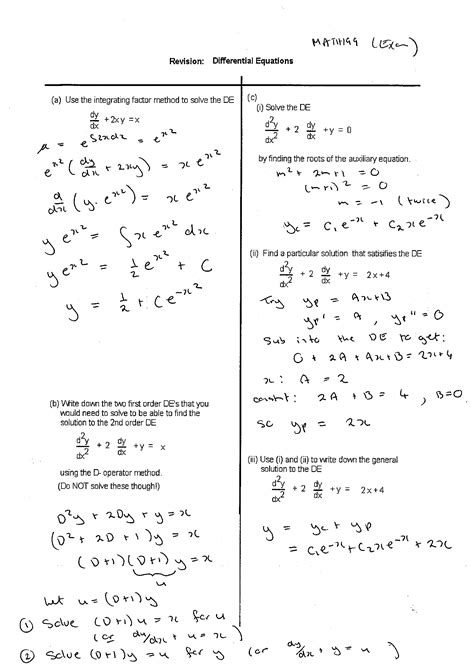 MATH199 (Exam)
Revision: Differential Equations
(a) Use the integrating factor method to solve the DE
dy/dx + 2xy = x
μ = e^∫2xdx = e^x²
e^x² (dy/dx + 2xy) = x e^x²
d/dx (y.e^x²) = x e^x²
y e^x² = ∫x e^x² dx
y e^x² = 1/2 e^x² + C
y = 1/2 + C e^-x²
(b) Write down the two first order DE's that you
would need to solve to be able to find the
solution to the 2nd order DE
d²y/dx² + 2 dy/dx + y = x
using the D- operator method.
(Do NOT solve these though!)
D²y + 2Dy + y = x
(D² + 2D + 1)y = x
(D+1)(D+1)y = x
u
Let u = (D+1)y
① Solve (D+1)u = x for u
(or du/dx + u = x)
② Solve (D+1)y = u for y (or dy/dx + y = u)
(c)
(i) Solve the DE
d²y/dx² + 2 dy/dx + y = 0
by finding the roots of the auxiliary equation.
m² + 2m + 1 = 0
(m+1)² = 0
m = -1 (twice)
yc = C1 e^-x + C2 x e^-x
(ii) Find a particular solution that satisifies the DE
d²y/dx² + 2 dy/dx + y = 2x+4
Try yp = Ax+B
yp' = A , yp'' = 0
Sub into the DE to get:
0 + 2A + Ax + B = 2x+4
x: A = 2
constnt: 2A + B = 4 , B=0
so yp = 2x
(iii) Use (i) and (ii) to write down the general
solution to the DE
d²y/dx² + 2 dy/dx + y = 2x+4
y = yc + yp
= C1 e^-x + C2 x e^-x + 2x